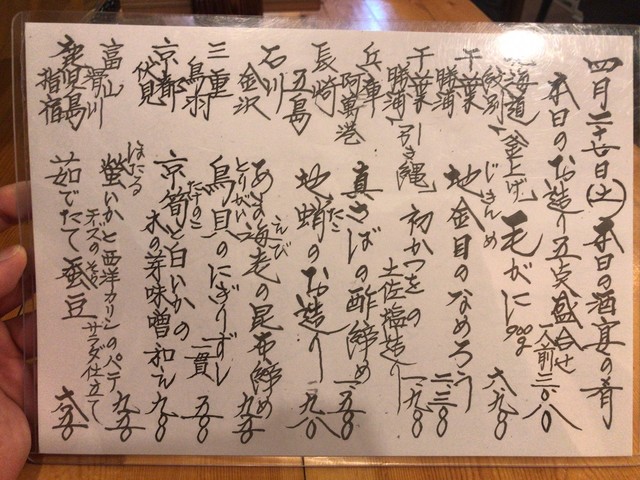 四月二十七日(土) 本日の酒宴の肴
本日のお造り五点盛合せ 一人前 二〇八〇
北海道 紋別 釜上げ 毛がに 500g 六九八〇
千葉 勝浦 地金目のなめろう じきんめ 一二三〇
千葉 勝浦 引き縄 初かつをの土佐塩造り 一、九八〇
兵庫 阿萬港 真さばの酢締め 一、二五〇
長崎 五島 地蛸のお造り たこ 一、二八〇
石川 金沢 あま海老の昆布締め えび 九五〇
三重 鳥羽 鳥貝のにぎりずし とりがい 一貫 五〇〇
京都 伏見 京筍と白いかの木の芽味噌和え たけのこ 九八〇
富山 滑川 螢いかと西洋カリンのパテ ほたる サラダ仕立て 九五〇
鹿児島 指宿 茹でたて蚕豆 六五〇